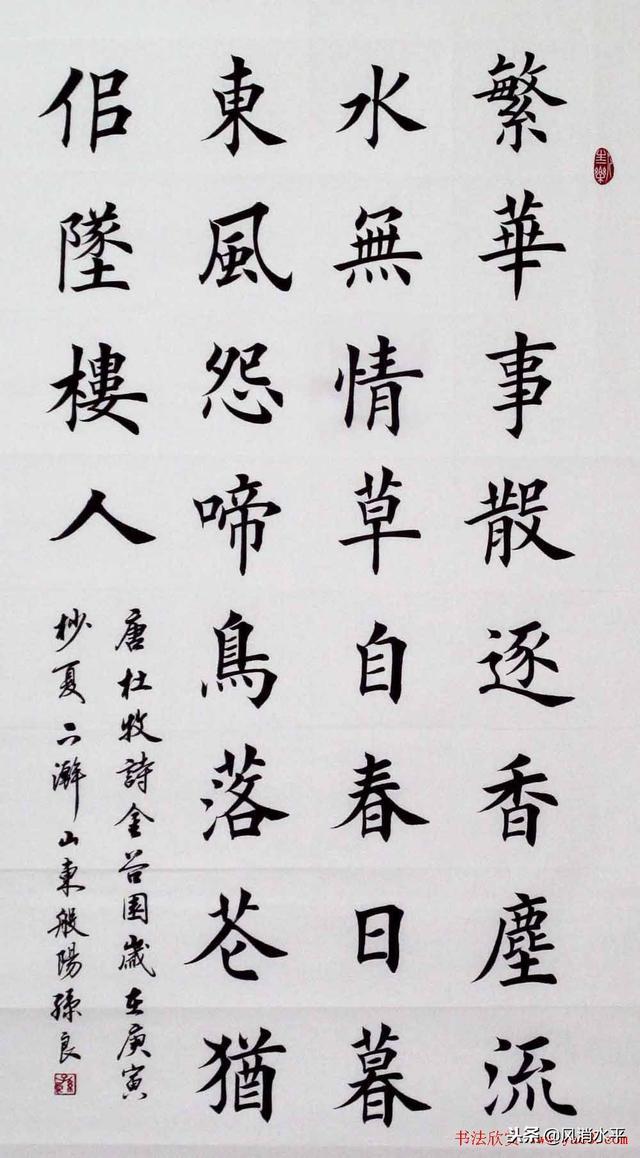 繁華事散逐香塵流
水無情草自春日暮
東風怨啼鳥落花猶
佀墜樓人
唐杜牧詩金谷園歲在庚寅
杪夏下澣山東般陽孫良
书法欣
头条 @风消水平